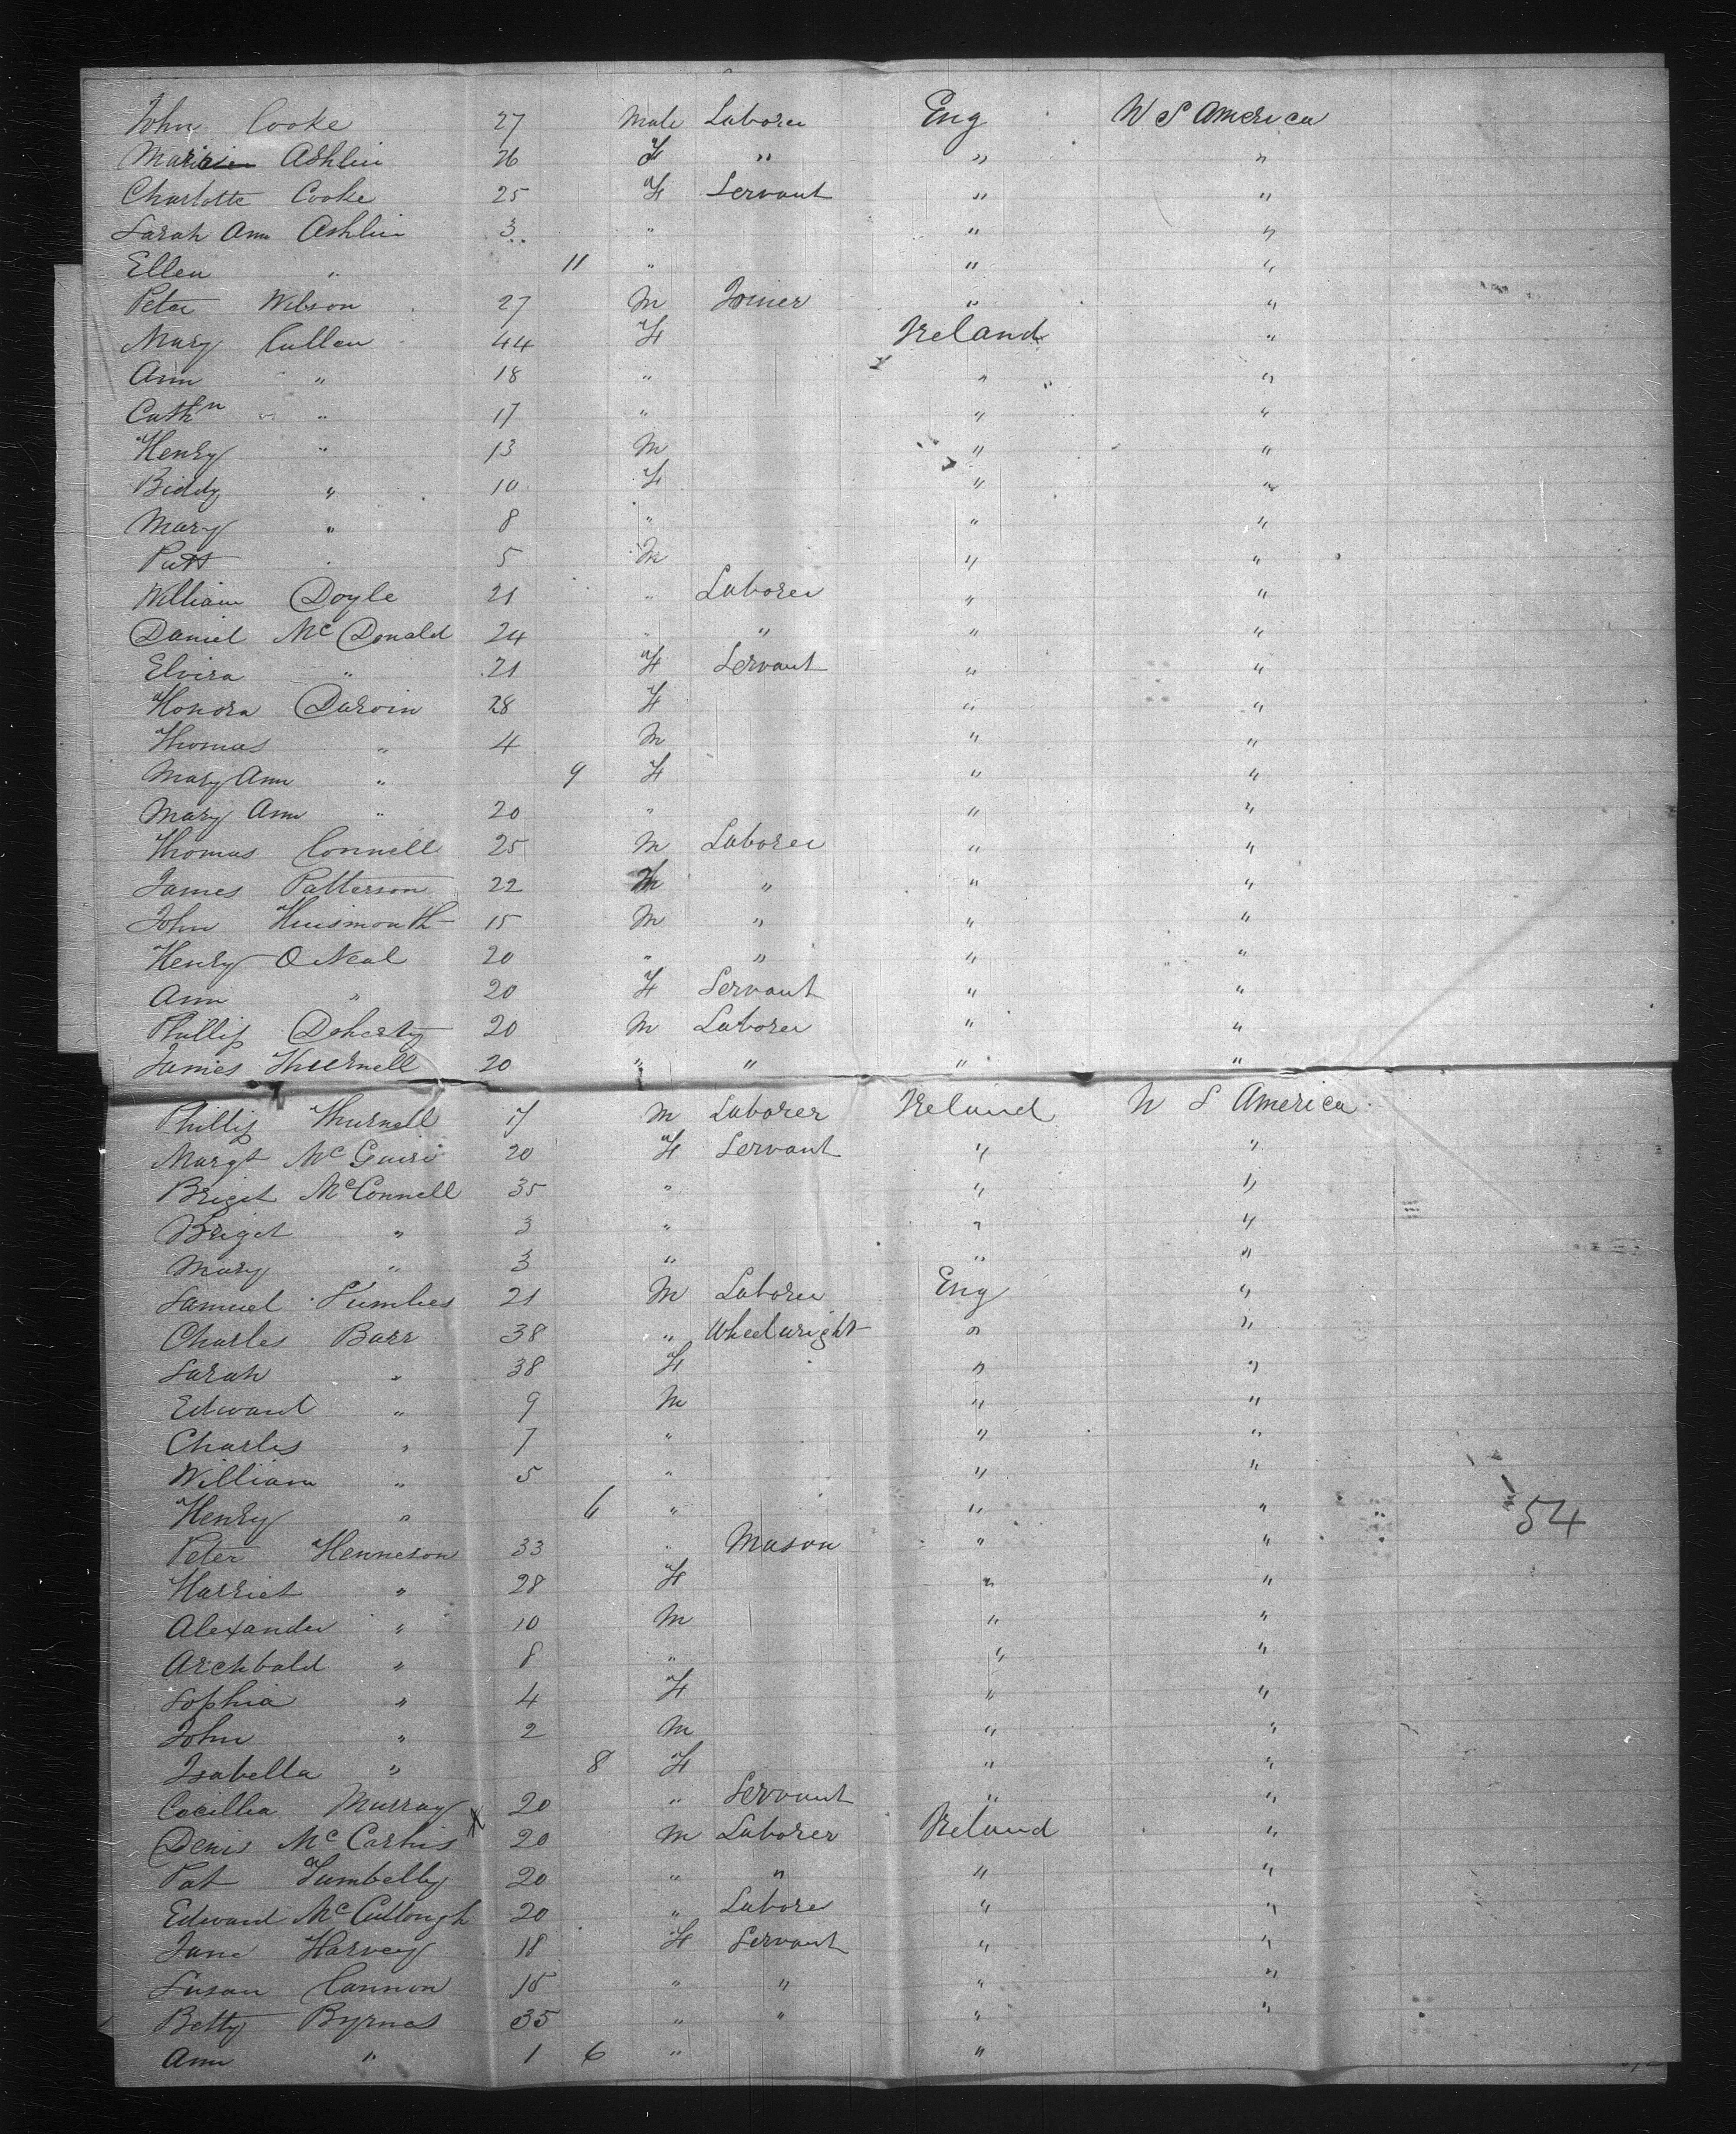 John Cooke 27 Male Laborer Eng U S America
Maria Ashlin 26 F " " "
Charlotte Cooke 25 F Servant " "
Sarah Ann Ashlin 3 " " "
Ellen " 11 " " "
Peter Wilson 27 M Joiner " "
Mary Cullen 44 F Ireland "
Ann " 18 " " "
Cathn " 17 " " "
Henry " 13 M " "
Biddy " 10 F " "
Mary " 8 " " "
Patt 5 M " "
William Doyle 21 " Laborer " "
Daniel McDonald 24 " " " "
Elvira " 21 F Servant " "
Honora Darvin 28 F " "
Thomas " 4 M " "
Mary Ann " 9 F " "
Mary Ann " 20 " " "
Thomas Connell 25 M Laborer " "
James Patterson 22 M " " "
John 15 M " " "
Henry O Neal 20 " " " "
Ann " 20 F Servant " "
Phillip Doherty 20 M Laborer " "
James Thurnell 20 " " " "
Phillip Thurnell 17 M Laborer Ireland U S America
Margt McGuire 20 F Servant " "
Briget McConnell 35 " " "
Briget " 3 " " "
Mary " 3 " " "
Samuel 21 M Laborer Eng "
Charles Barr 38 " Wheelwright " "
Sarah " 38 F " "
Edward " 9 M " "
Charles " 7 " " "
William " 5 " " "
Henry " 6 " " "
54
Peter Henneson 33 " Mason " "
Harriet " 28 F " "
Alexander " 10 M " "
Archbald " 8 " " "
Sophia " 4 F " "
John " 2 M " "
Isabella " 8 F " "
Cecillia Murray 20 " Servant " "
Denis McCarhis 20 M Laborer Ireland "
Pat 20 " " " "
Edward McCullough 20 " Labore " "
Jane Harvey 18 F Servant " "
Susan Cannon 18 " " " "
Betty Byrnes 35 " " " "
Ann " 1 6 " "